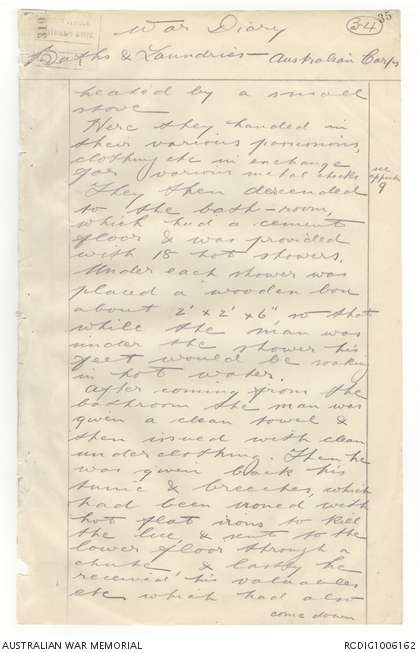 35
34
310
War Diary
Baths & Laundries - Australian Corps
heated by a small
stove
Here they handed in
their various possessions,
clothing etc in exchange
for various metal checks
see
appendix
9
They then descended
to the bath-room,
which had a cement
floor & was provided
with 18 hot showers.
Under each shower was
placed a wooden box
about 2' x 2' x 6" so that
while the man was
under the shower his
feet would be soaking
in hot water.
After coming from the
bathroom the man was
given a clean towel &
then issued with clean
underclothing. Then he
was given back his
tunic & breeches, which
had been ironed with
hot flat irons to kill
the lice, & sent to the
lower floor through a
chute & lastly he
received his valuables
etc which had also
come down
AUSTRALIAN WAR MEMORIAL
RCDIG1006162